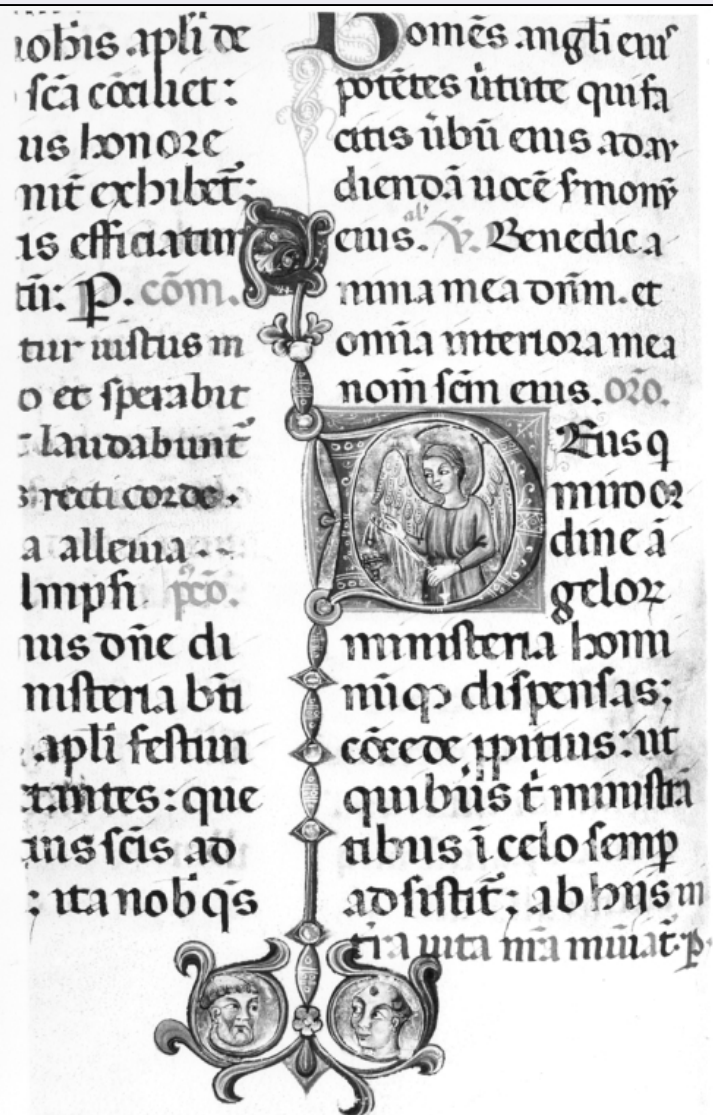 nobis apl̄i de
sc̄a cōciliet:
us honore
nit̄ exhibet̄:
is efficiatur
P. cōm.
tur iustus in
o et sperabit
laudabunt̄
recti corde.
a alleuia
Impn̄ pcō.
mus dn̄e di
nisteria bt̄i
apl̄i festiui
tantes: que
ius sc̄is ad
: ita nob̄ qs̄
Bomēs angl̄i eius
potētes ūtute qui fa
citis ūbū eius ad au
diendā uocē ẜmonū
ab
eius. V̄. Benedic a
nima mea dn̄m. et
om̄ia interiora mea
nom̄ sc̄m eius. or̄o.
Deus q
miro or
dine ā
geloꝝ
ministeria homi
nūqꝫ dispensas;
cōcede ꝓpitius: ut
quibus t̄ ministrā
tibus ī celo semꝑ
adsistit̄; ab hijs in
t̄ra uita nr̄a muniat̄. p̱